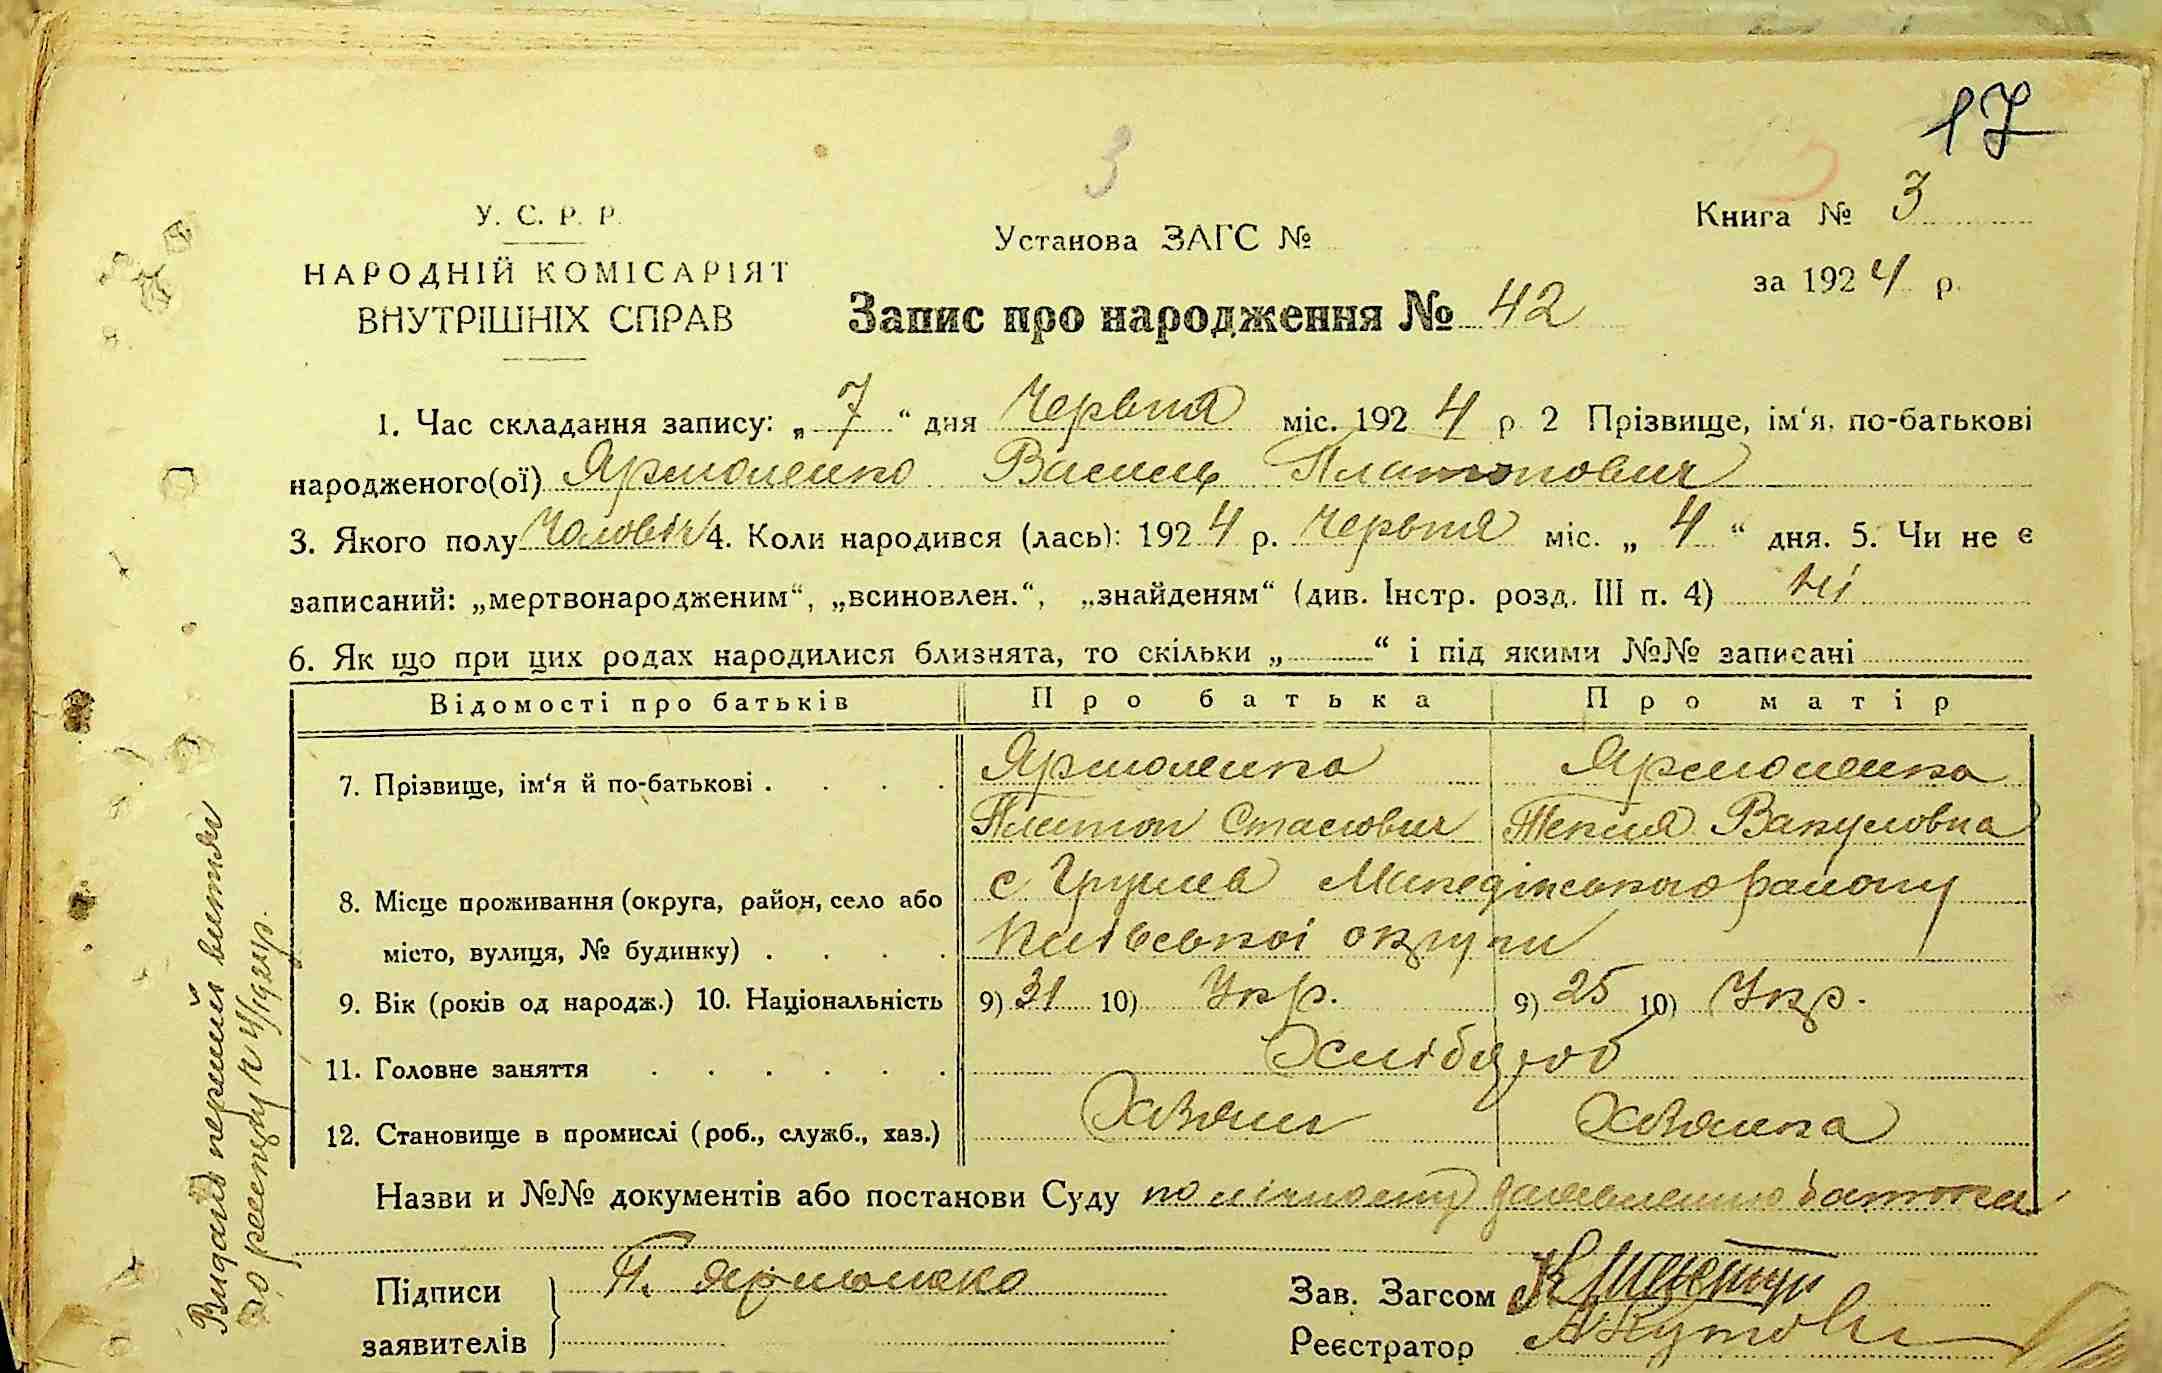 17
3
У. С. Р. Р.
НАРОДНІЙ КОМІСАРІЯТ
ВНУТРІШНІХ СПРАВ
Установа ЗАГС №
Книга № 3
за 1924 р.
Запис про народження № 42
1. Час складання запису: „ 7 “ дня Червня міс. 1924 р 2 Прізвище, ім‘я, по-батькові
народженого(ої) Ярмоленко Василь Платонович
3. Якого полу Чоловіч 4. Коли народився (лась): 1924 р. Червня міс. „ 4 “ дня. 5. Чи не є
записаний: „мертвонародженим“, „всиновлен.“, „знайденям“ (див. Інстр. розд. III п. 4) ні
6. Як що при цих родах народилися близнята, то скільки „ “ і під якими №№ записані
Відомості про батьків Про батька Про матір
7. Прізвище, ім‘я й по-батькові . . . . Ярмоленко Ярмоленко
Платон Стасович Текля Вакуловна
8. Місце проживання (округа, район, село або с. Грузька Макарівського району
місто, вулиця, № будинку) . . . . Київської округи
9. Вік (років од народж.) 10. Національність 9) 31 10) Укр. 9) 25 10) Укр.
11. Головне заняття . . . . . . Хлібороб
12. Становище в промислі (роб., служб., хаз.) Хазяин Хазяйка
Назви и №№ документів або постанови Суду по заявлению батька
Підписи
заявителів
П. Ярмоленко
Зав. Загсом
Реєстратор
Видано перший витяг